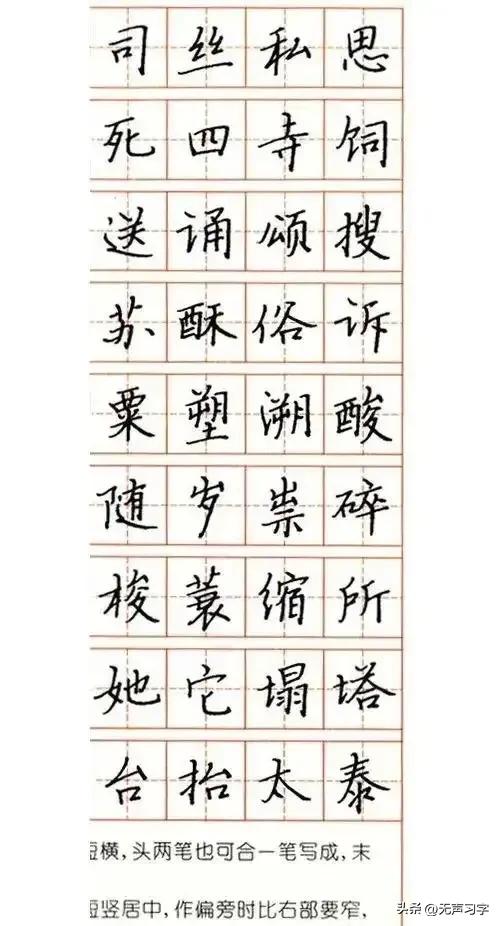 司丝私思
死四寺饲
送诵颂搜
苏酥俗诉
粟塑溯酸
随岁祟碎
梭蓑缩所
她它塌塔
台抬太泰
短横,头两笔也可合一笔写成,末
短竖居中,作偏旁时比右部要窄,
头条 @无声习字